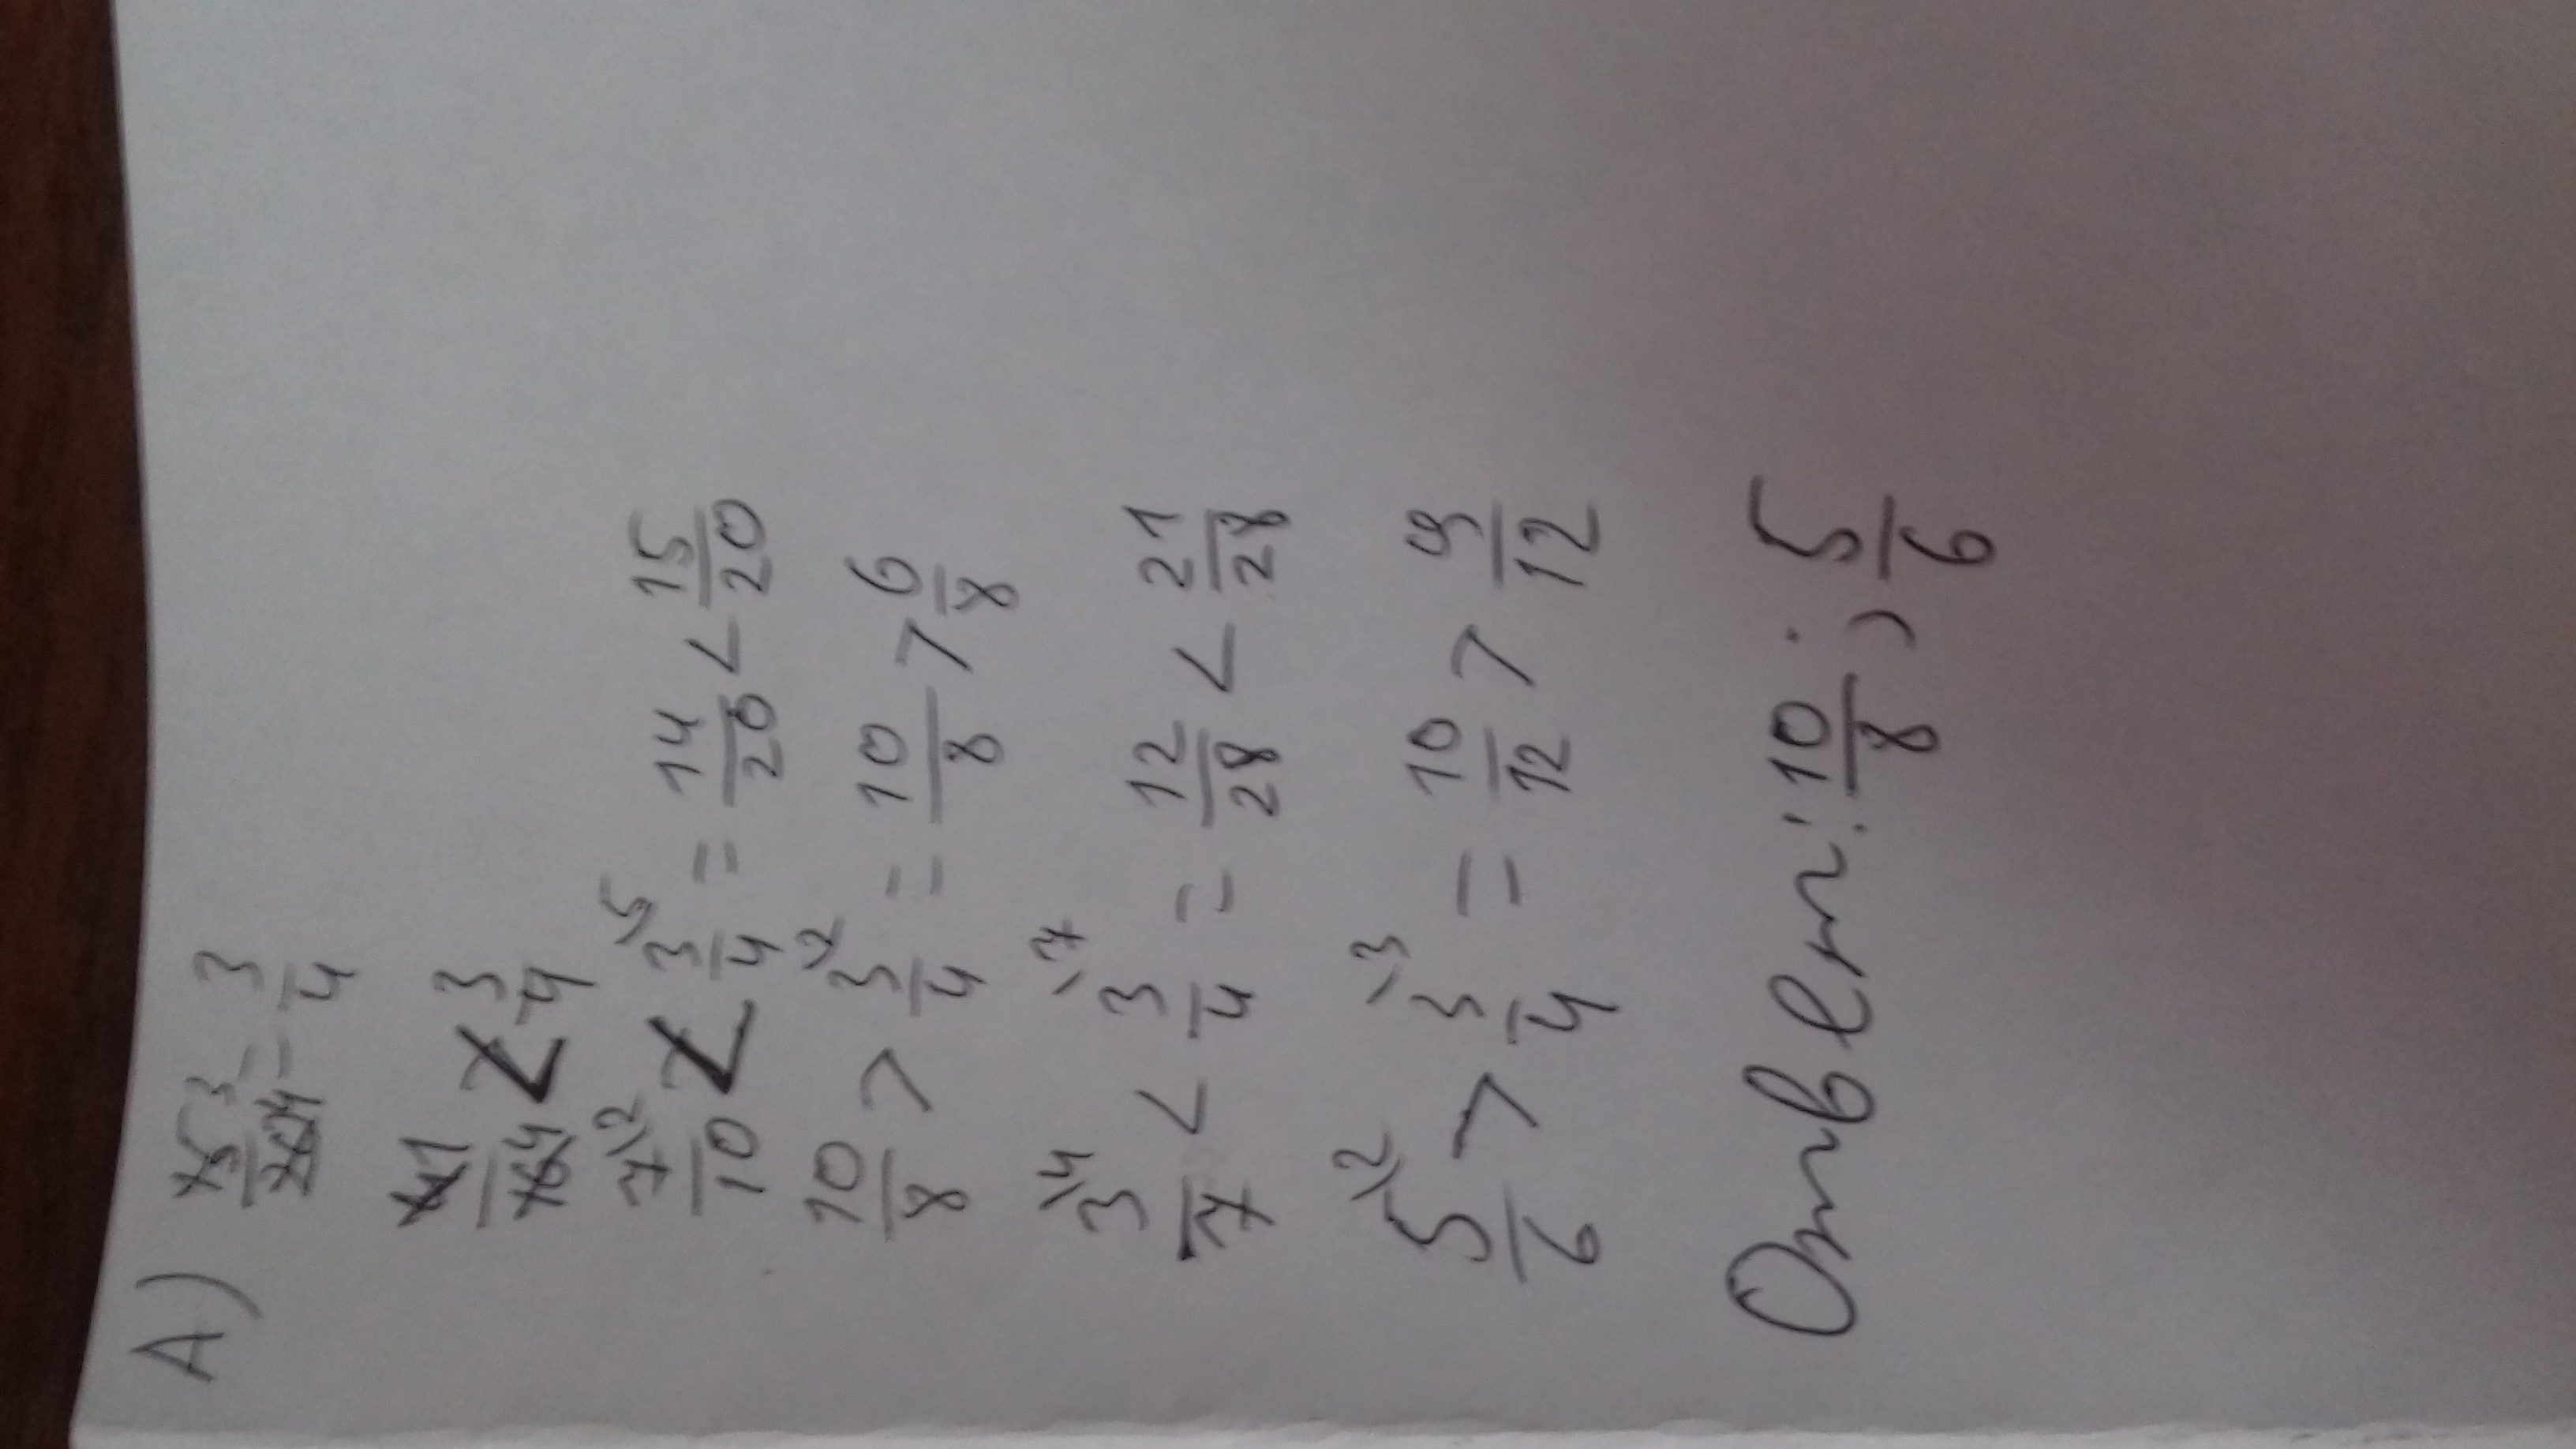 А) 15/20 3/4 = 3/4
1/4 < 3/4
7\2/10 < 3\5/4 = 14/20 < 15/20
10/8 > 3\2/4 = 10/8 > 6/8
3\4/7 < 3\7/4 = 12/28 < 21/28
5\2/6 > 3\3/4 = 10/12 > 9/12
Ответ: 10/8; 5/6